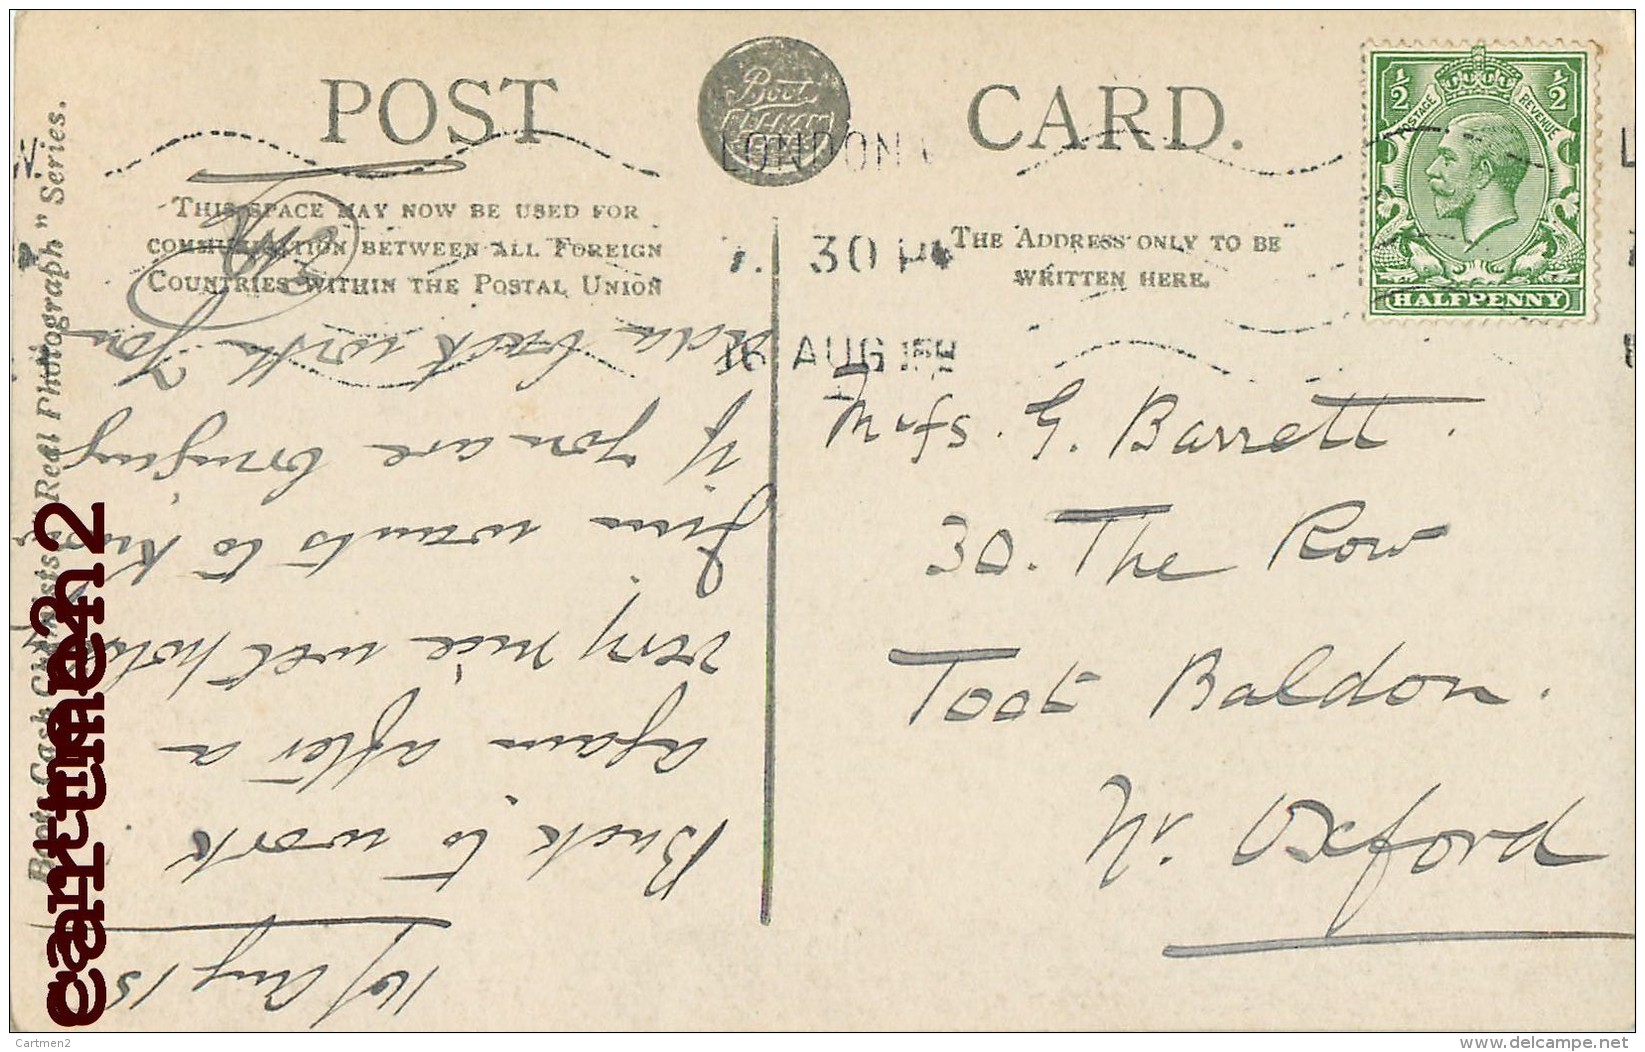 POST CARD.
Boots
CASH
CHEMISTS
LONDON
7. 30 PM
16 AUG 15
THIS SPACE MAY NOW BE USED FOR
COMMUNICATION BETWEEN ALL FOREIGN
COUNTRIES WITHIN THE POSTAL UNION
THE ADDRESS ONLY TO BE
WRITTEN HERE.
POSTAGE REVENUE
½ ½
HALFPENNY
Boots Cash Chemists "Real Photograph" Series.
16/Aug 15
Back to work
again after a
very nice wet holiday
Jim wants to know
if you are bringing
Ada back with you
Miss. G. Barrett.
30. The Row
Toot Baldon.
Nr. Oxford
cartmen2
Cartmen2
delcampe.net